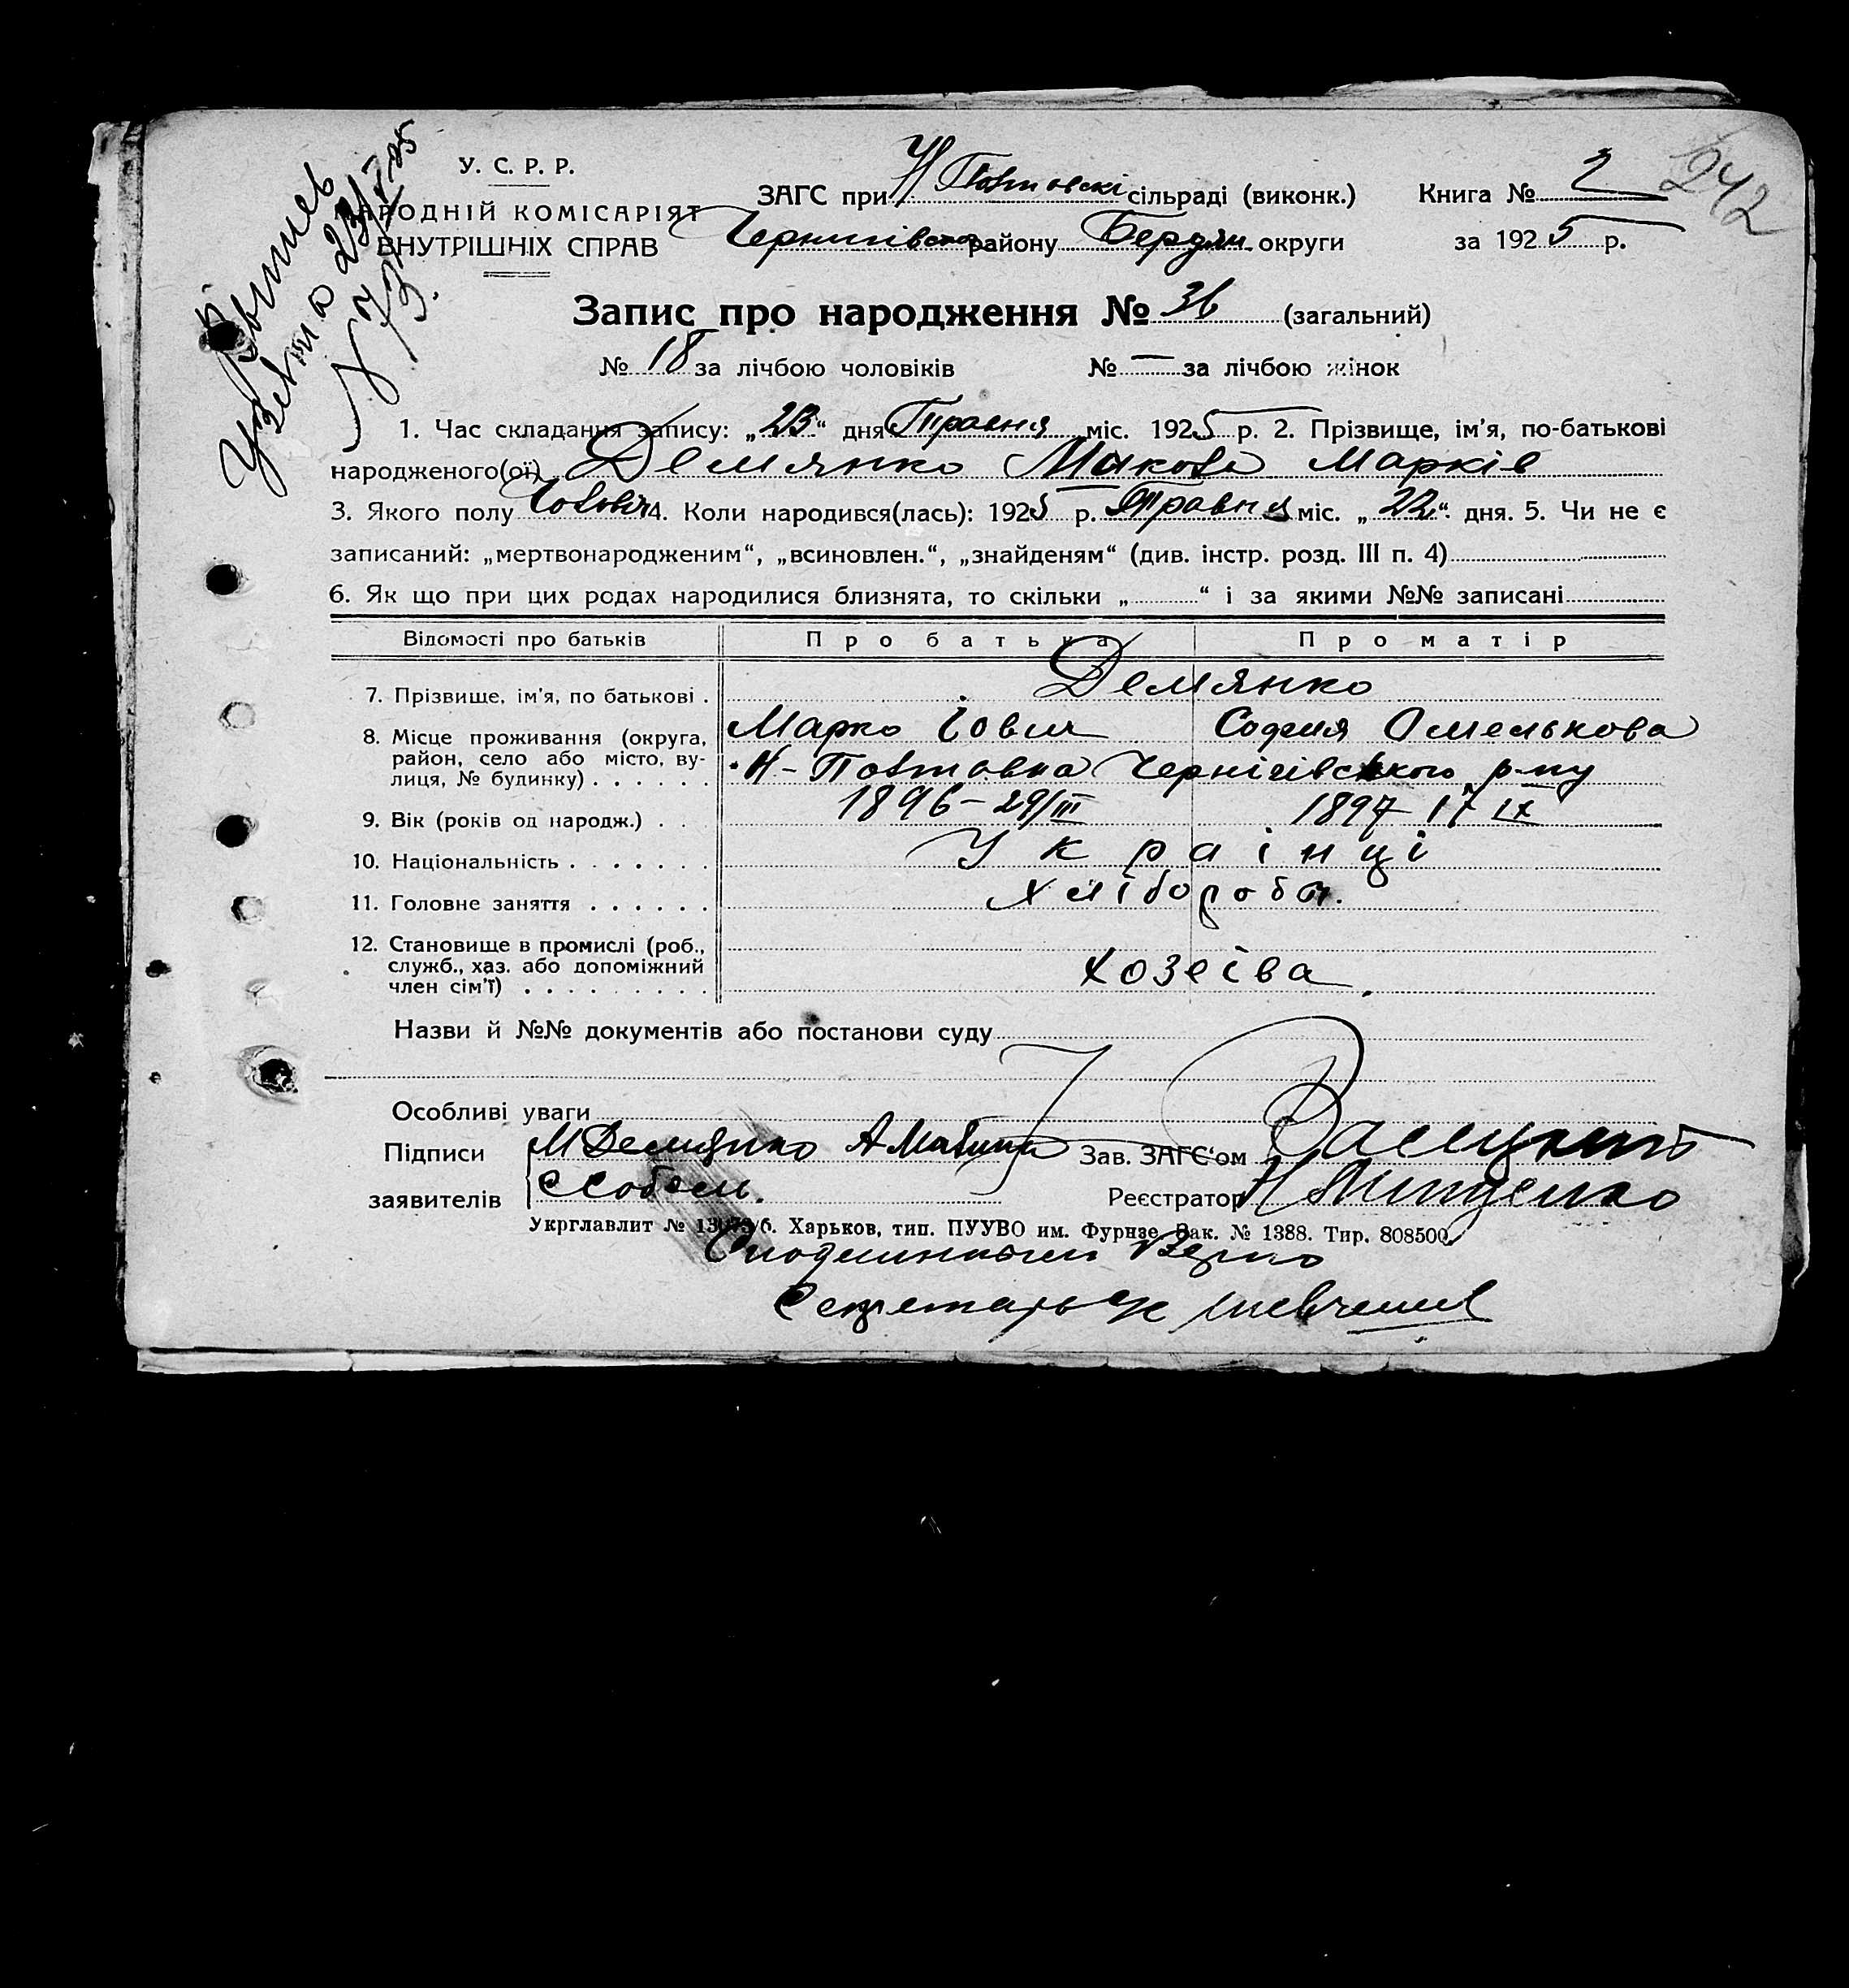 У. С. Р. Р.
НАРОДНІЙ КОМІСАРІЯТ
ВНУТРІШНІХ СПРАВ
242
ЗАГС при Н Полтовскі сільраді (виконк.) Книга № 2
району Бердян округи за 1925 р.
Запис про народження № 36 (загальний)
№ 18 за лічбою чоловіків № — за лічбою жінок
1. Час складання запису: „23“ дня Травня міс. 1925 р. 2. Прізвище, ім'я, по-батькові
народженого(ої) Демянко Марків
3. Якого полу 4. Коли народився(лась): 1925 р. Травня міс. „22“ дня. 5. Чи не є
записаний: „мертвонародженим“, „всиновлен.“, „знайденям“ (див. інстр. розд. III п. 4)
6. Як що при цих родах народилися близнята, то скільки „ “ і за якими №№ записані
Відомості про батьків Про батька Про матір
7. Прізвище, ім'я, по батькові . Демянко
Марко Іович София Омелькова
8. Місце проживання (округа,
район, село або місто, ву-
лиця, № будинку) . . . . . . Н-Полтавка Чернігівського р-ну
9. Вік (років од народж.) . . 1896 – 29/III 1897 17 IX
10. Національність . . . . . . . Украінці
11. Головне заняття . . . . . . Хліборобы.
12. Становище в промислі (роб.,
служб., хаз. або допоміжний
член сім'ї) . . . . . . . . . Хозеіва
Назви й №№ документів або постанови суду
Особливі уваги
Підписи М Демянко Зав. ЗАГС'ом
заявителів Соболь. Реєстратор
Укрглавлит № 13073/б. Харьков, тип. ПУУВО им. Фурнзе. Зак. № 1388. Тир. 808500.
С подлинным верно
Секретарь